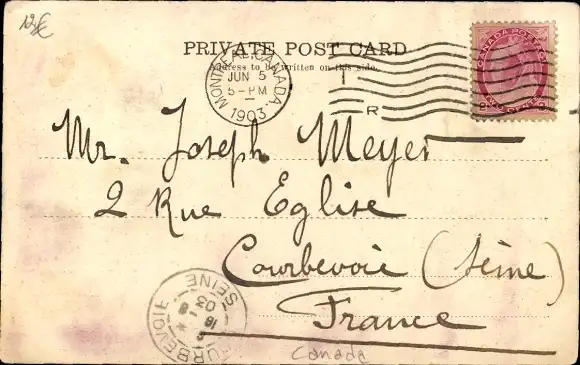 12€
PRIVATE POST CARD
Address to be written on this side.
MONTREAL CANADA
JUN 5
5-PM
1903
R
CANADA POSTAGE
Mr. Joseph Meyer
2 Rue Eglise
Courbevoie (Seine)
France
COURBEVOIE SEINE
16
03
Canada